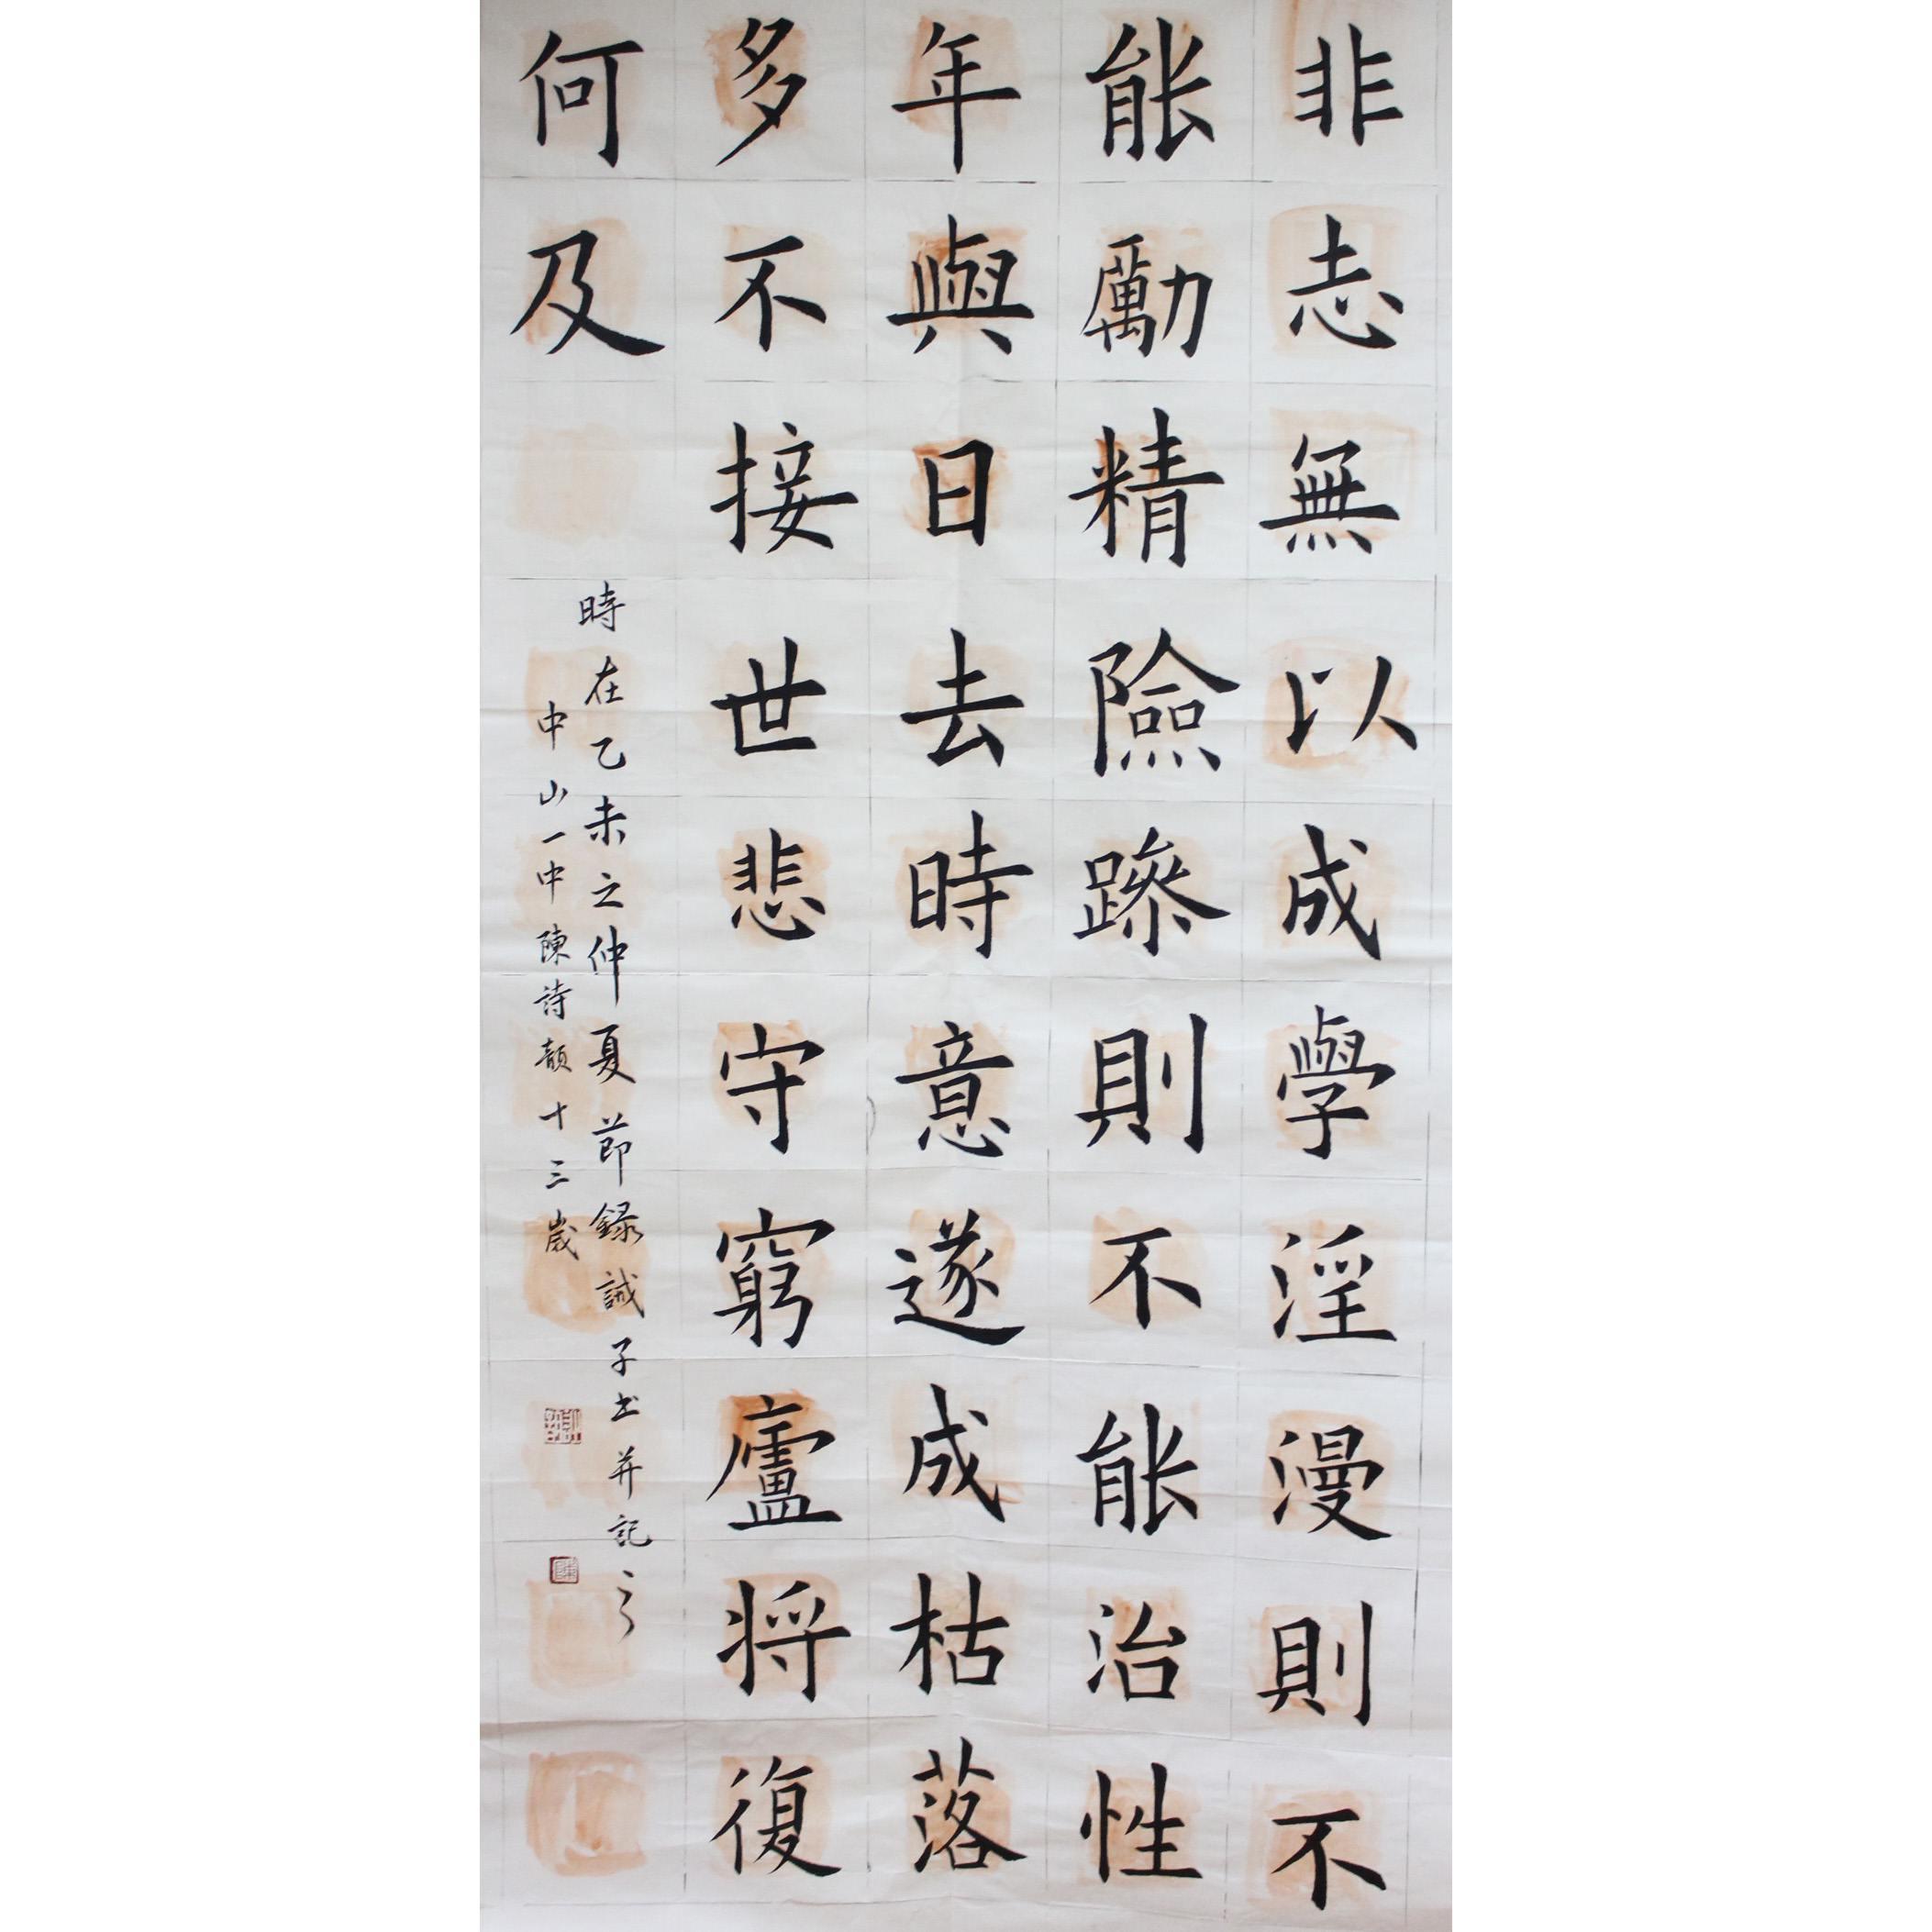 非志無以成學淫漫則不
能勵精險躁則不能治性
年與日去時意遂成枯落
多不接世悲守窮廬将復
何及
時在乙未之仲夏節録誡子书并記之
中山一中陳詩韻十三歲